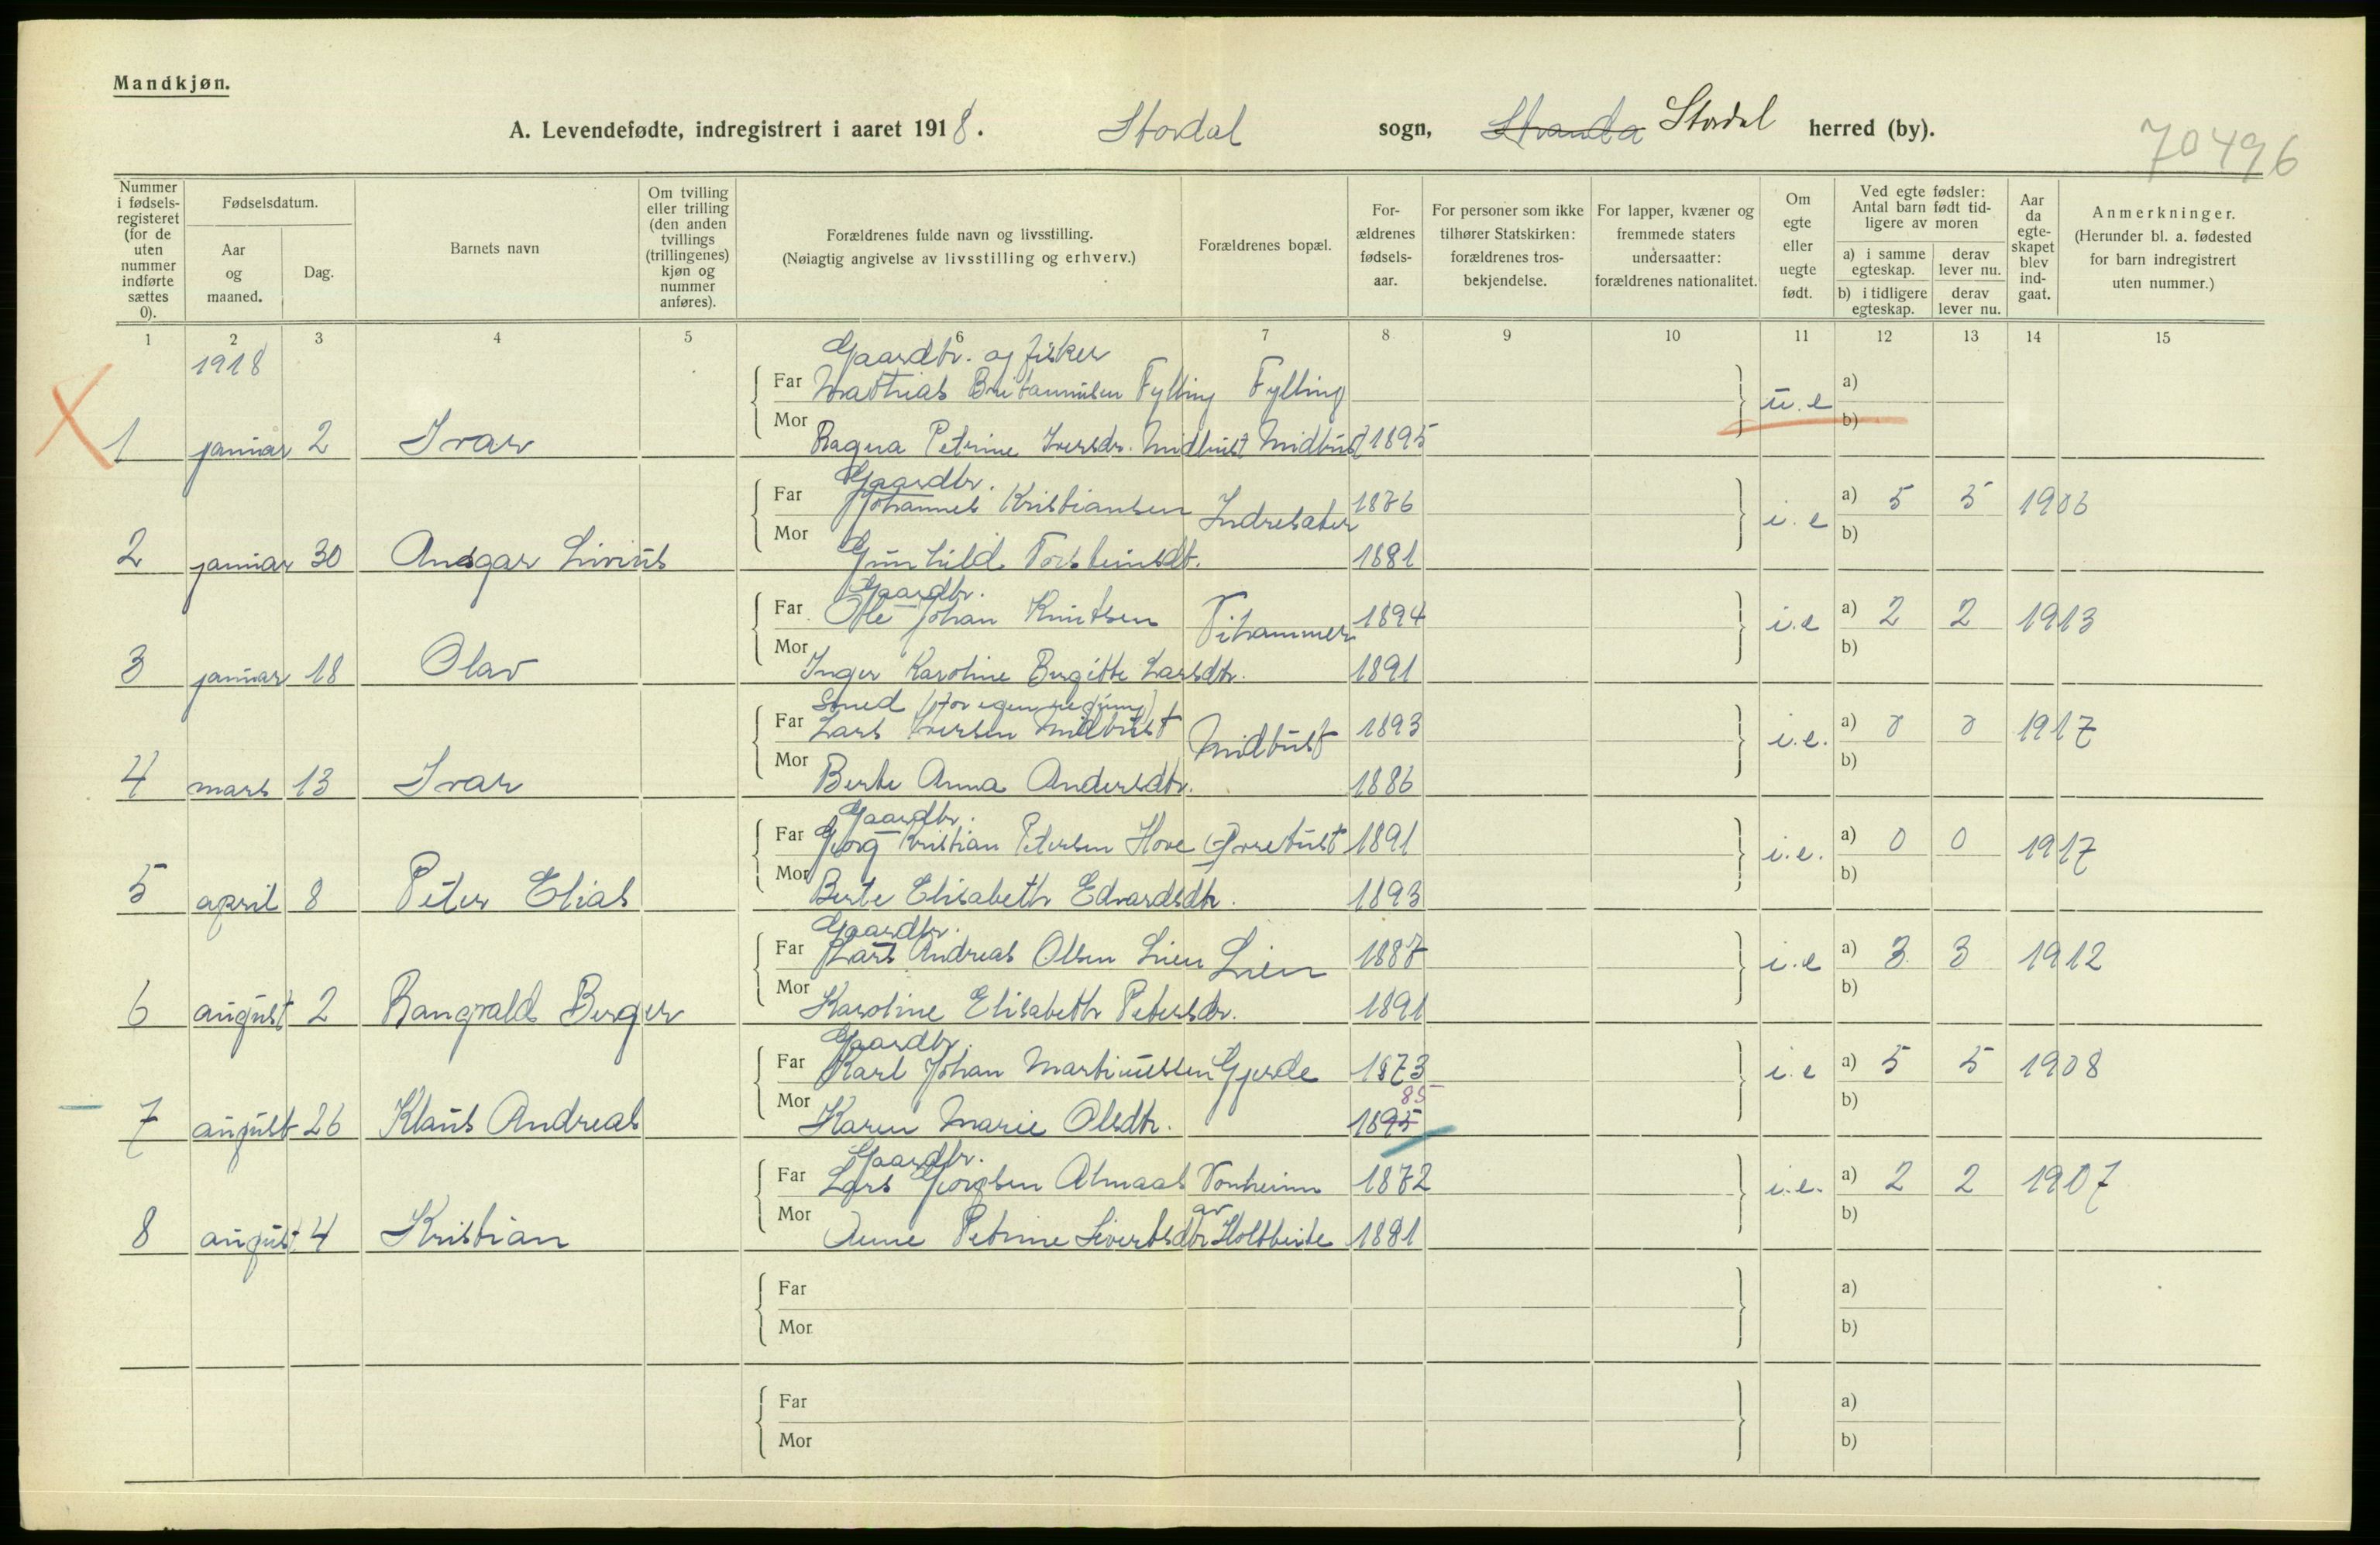 Mandkjøn.
A. Levendefødte, indregistrert i aaret 1918. Stordal sogn, Stranda Stordal herred (by).
70496
Nummer i fødselsregisteret (for de uten nummer indførte sættes 0).
Fødselsdatum.
Aar og maaned.
Dag.
Barnets navn
Om tvilling eller trilling (den anden tvillings (trillingenes) kjøn og nummer anføres).
Forældrenes fulde navn og livsstilling.
(Nøiagtig angivelse av livsstilling og erhverv.)
Forældrenes bopæl.
Forældrenes fødselsaar.
For personer som ikke tilhører Statskirken: forældrenes trosbekjendelse.
For lapper, kvæner og fremmede staters undersaatter: forældrenes nationalitet.
Om egte eller uegte født.
Ved egte fødsler: Antal barn født tidligere av moren
a) i samme egteskap.
derav lever nu.
b) i tidligere egteskap.
derav lever nu.
Aar da egteskapet blev indgaat.
Anmerkninger.
(Herunder bl. a. fødested for barn indregistrert uten nummer.)
1 2 3 4 5 6 7 8 9 10 11 12 13 14 15
1918
Gaardbr. og fisker
Far Mathias Fylling Fylling a)
u.e
1 januar 2 Ivar
Mor Ragna Petrine Iversdr. Midbust Midbust 1895 b)
Gaardbr.
Far Johannes Kristiansen Indresæter 1876 i.e a) 5 5 1906
2 januar 30 Ansgar Livius
Mor Gunhild Torsteinsdt. 1881 b)
Gaardbr.
Far Ole Johan Knutsen Vihammer 1894 i.e a) 2 2 1913
3 januar 18 Olav
Mor Inger Karoline Birgitte Larsdtr. 1891 b)
Smed (for egen regning)
Far Lars Iversen Midbust Midbust 1893 i.e. a) 0 0 1917
4 mars 13 Ivar
Mor Berte Anna Andersdtr. 1886 b)
Gaardbr.
Far Georg Kristian Petersen Hove Øvrebust 1891 i.e. a) 0 0 1917
5 april 8 Peter Elias
Mor Berte Elisabeth Edvardsdtr. 1893 b)
Gaardbr.
Far Lars Andreas Olsen Lien Lien 1887 i.e a) 3 3 1912
6 august 2 Rangvald Birger
Mor Karoline Elisabeth Petersdr. 1891 b)
Gaardbr.
Far Karl Johan Martinussen Gjerde 1873 i.e a) 5 5 1908
85
7 august 26 Klaus Andreas
Mor Karen Marie Olsdtr. 1895 b)
Gaardbr.
Far Lars Georgsen Almaas Vonheim 1872 i.e. a) 2 2 1907
av
8 august 4 Kristian
Mor Anne Petrine Sivertsdtr Holtbeite 1881 b)
Far a)
Mor b)
Far a)
Mor b)